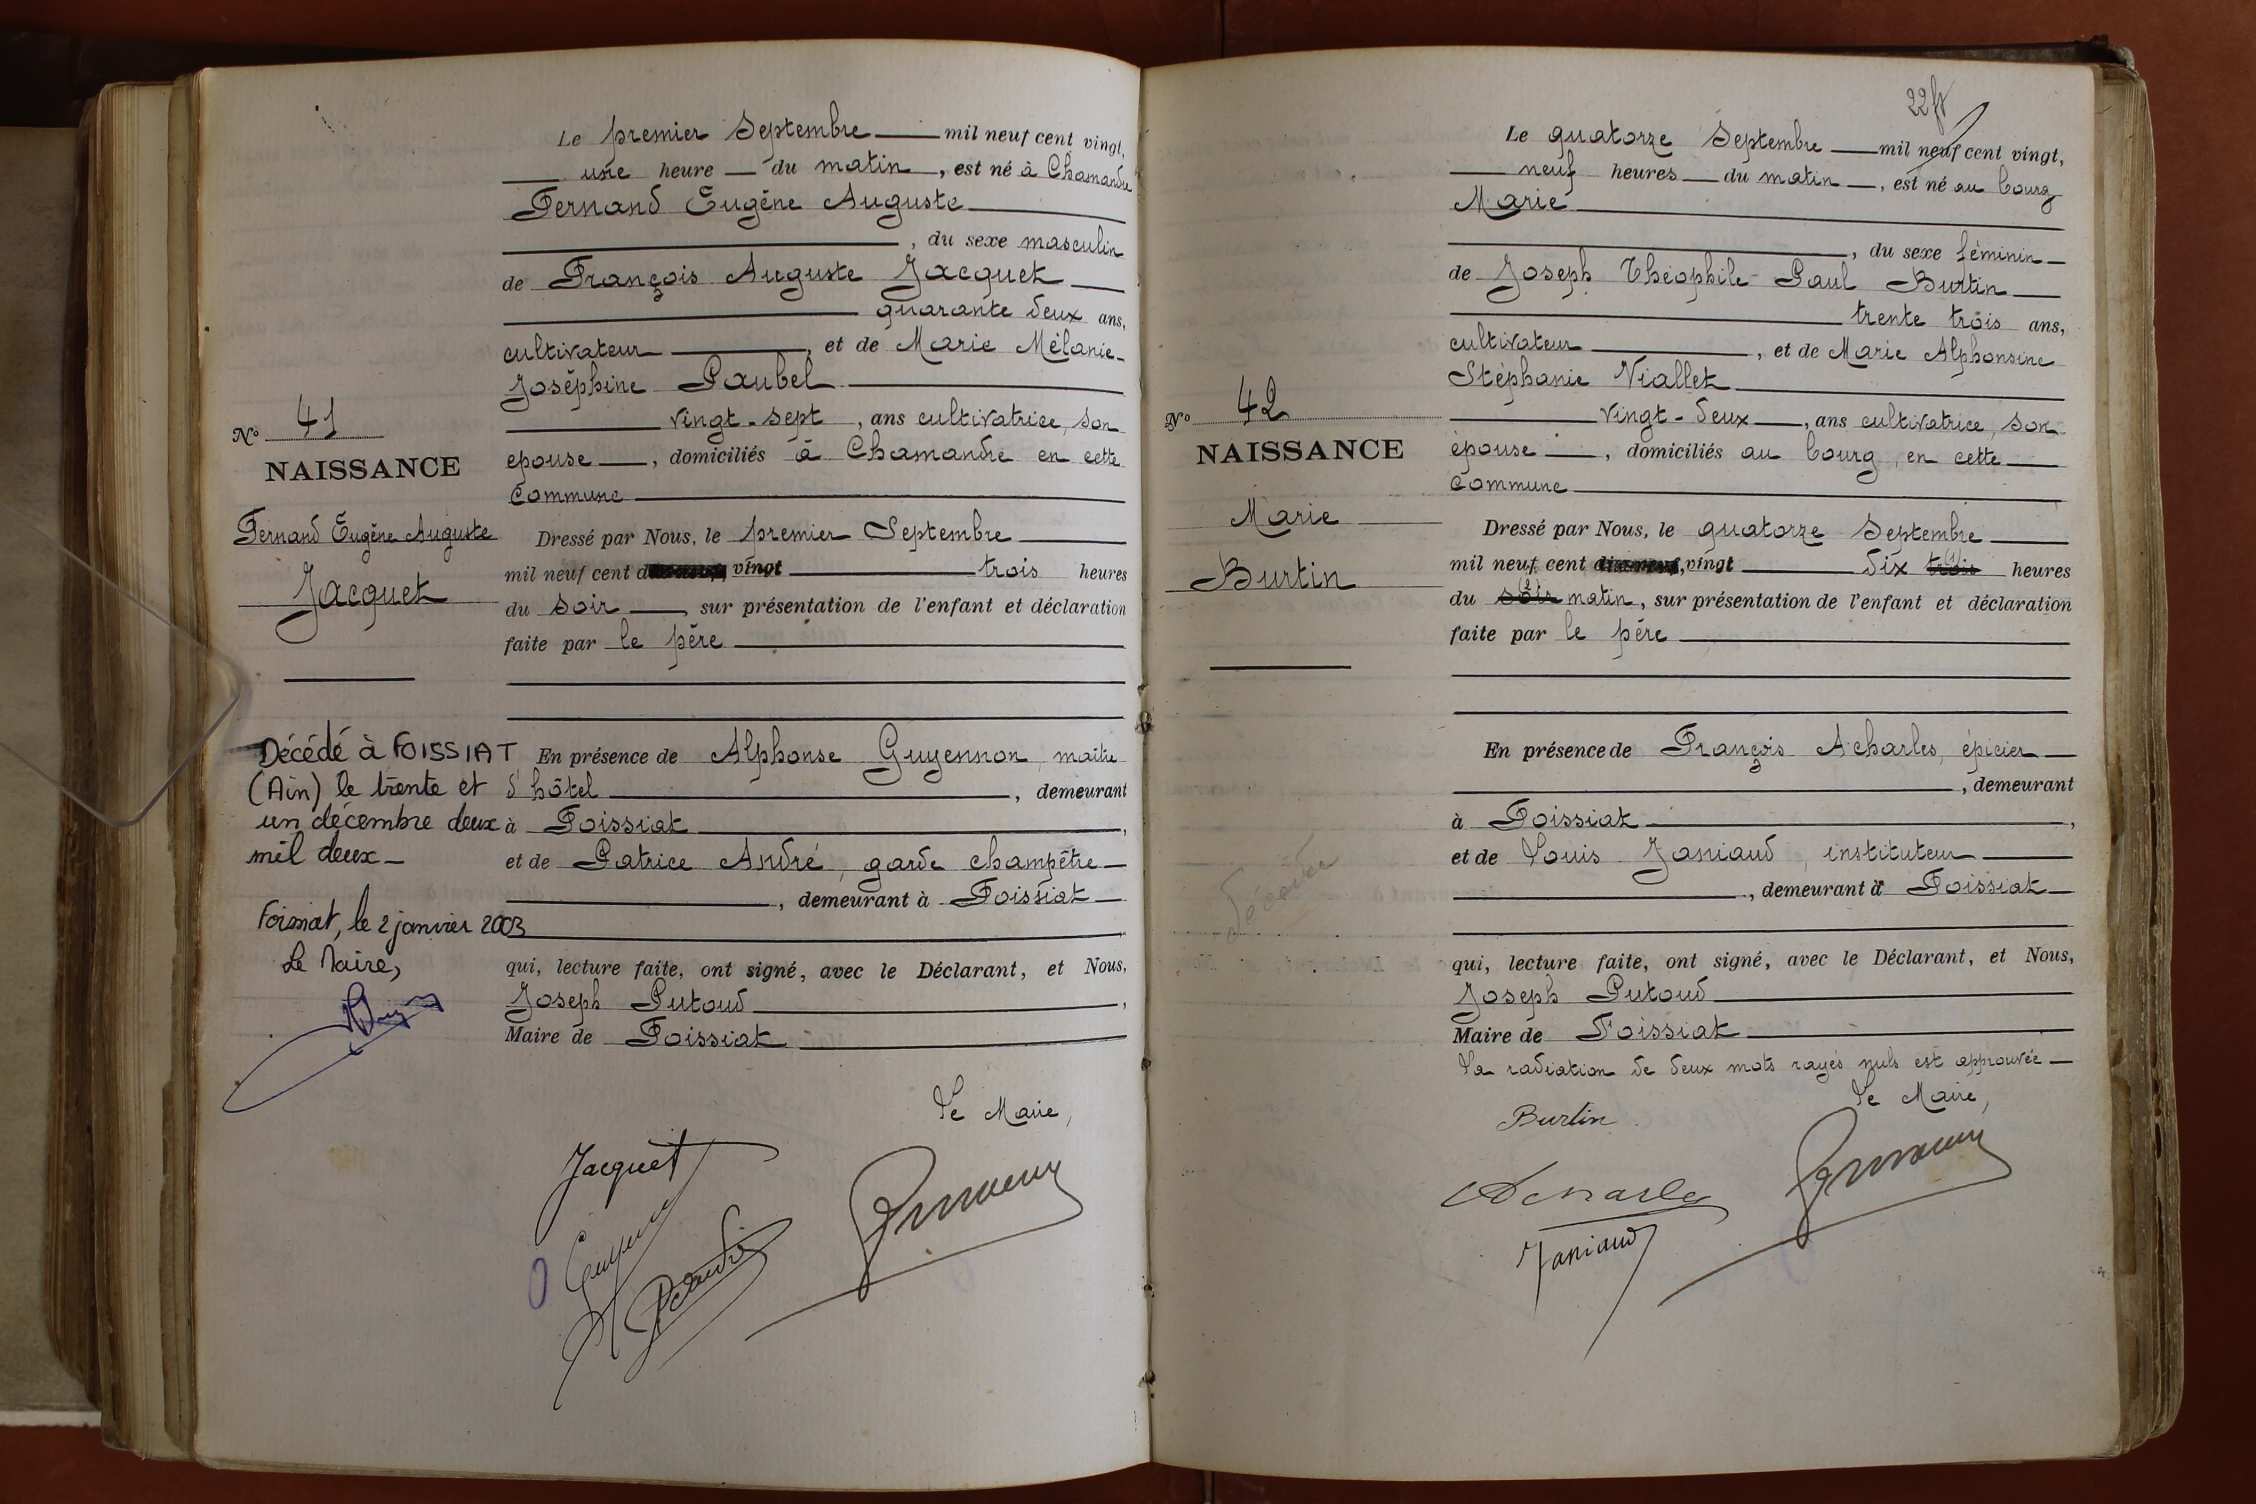 Le premier Septembre mil neuf cent vingt,
une heure du matin, est né à Chamandré
Fernand Eugène Auguste
, du sexe masculin
de François Auguste Jacquet
quarante deux ans,
cultivateur, et de Marie Mélanie
Joséphine Paubel
vingt-sept, ans cultivatrice, son
épouse, domiciliés à Chamandré en cette
commune
N° 41
NAISSANCE
Fernand Eugène Auguste
Jacquet
Dressé par Nous, le premier Septembre
mil neuf cent vingt trois heures
du soir, sur présentation de l'enfant et déclaration
faite par le père
Décédé à FOISSIAT
(Ain) le trente et
un décembre deux
mil deux
Foissiat, le 2 janvier 2003
Le Maire,
En présence de Alphonse Guyennon, maître
d'hôtel, demeurant
à Foissiat,
et de Patrice André, garde champêtre
, demeurant à Foissiat
qui, lecture faite, ont signé, avec le Déclarant, et Nous,
Joseph Putoud,
Maire de Foissiat
Le Maire,
Jacquet
22
Le quatorze Septembre mil neuf cent vingt,
neuf heures du matin, est né au bourg
Marie
, du sexe féminin
de Joseph Théophile Paul Burtin
trente trois ans,
cultivateur, et de Marie Alphonsine
Stéphanie Viallet
vingt-deux, ans cultivatrice, son
épouse, domiciliés au bourg, en cette
commune
N° 42
NAISSANCE
Marie
Burtin
Décédée
Dressé par Nous, le quatorze Septembre
mil neuf cent dix-neuf, vingt dix trois (1) heures
du soir (2) matin, sur présentation de l'enfant et déclaration
faite par le père
En présence de François Acharles, épicier
, demeurant
à Foissiat,
et de Louis Janiaud, instituteur
, demeurant à Foissiat
qui, lecture faite, ont signé, avec le Déclarant, et Nous,
Joseph Putoud
Maire de Foissiat
La radiation de deux mots rayés nuls est approuvée
Le Maire,
Burtin
Acharles
Janiaud